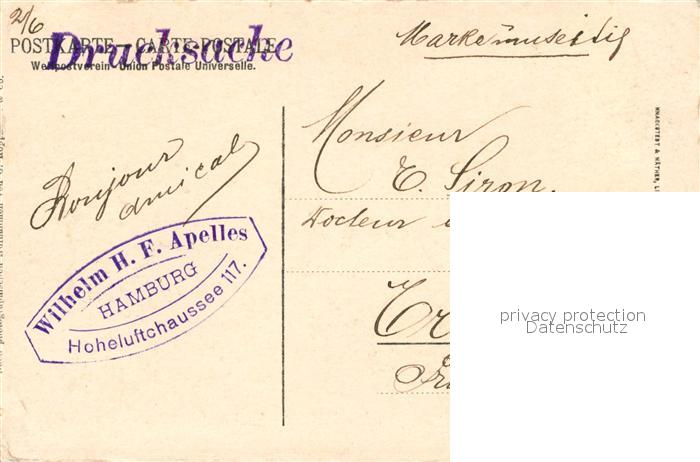 2/6
POSTKARTE - CARTE POSTALE
Drucksache
Weltpostverein - Union Postale Universelle.
Markenmuseitig
Monsieur
E. Siron.
Docteur
Bonjour
amical
Wilhelm H. F. Apelles
HAMBURG
Hoheluftchaussee 117.
KNACKSTEDT & NÄTHER,
privacy protection
Datenschutz